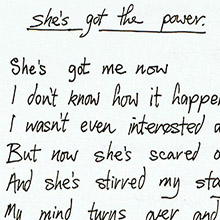 She's got the power.
She's got me now
I don't know how it happen
I wasn't even interested a
But now she's scared o
And she's stirred my sta
My mind turns over and